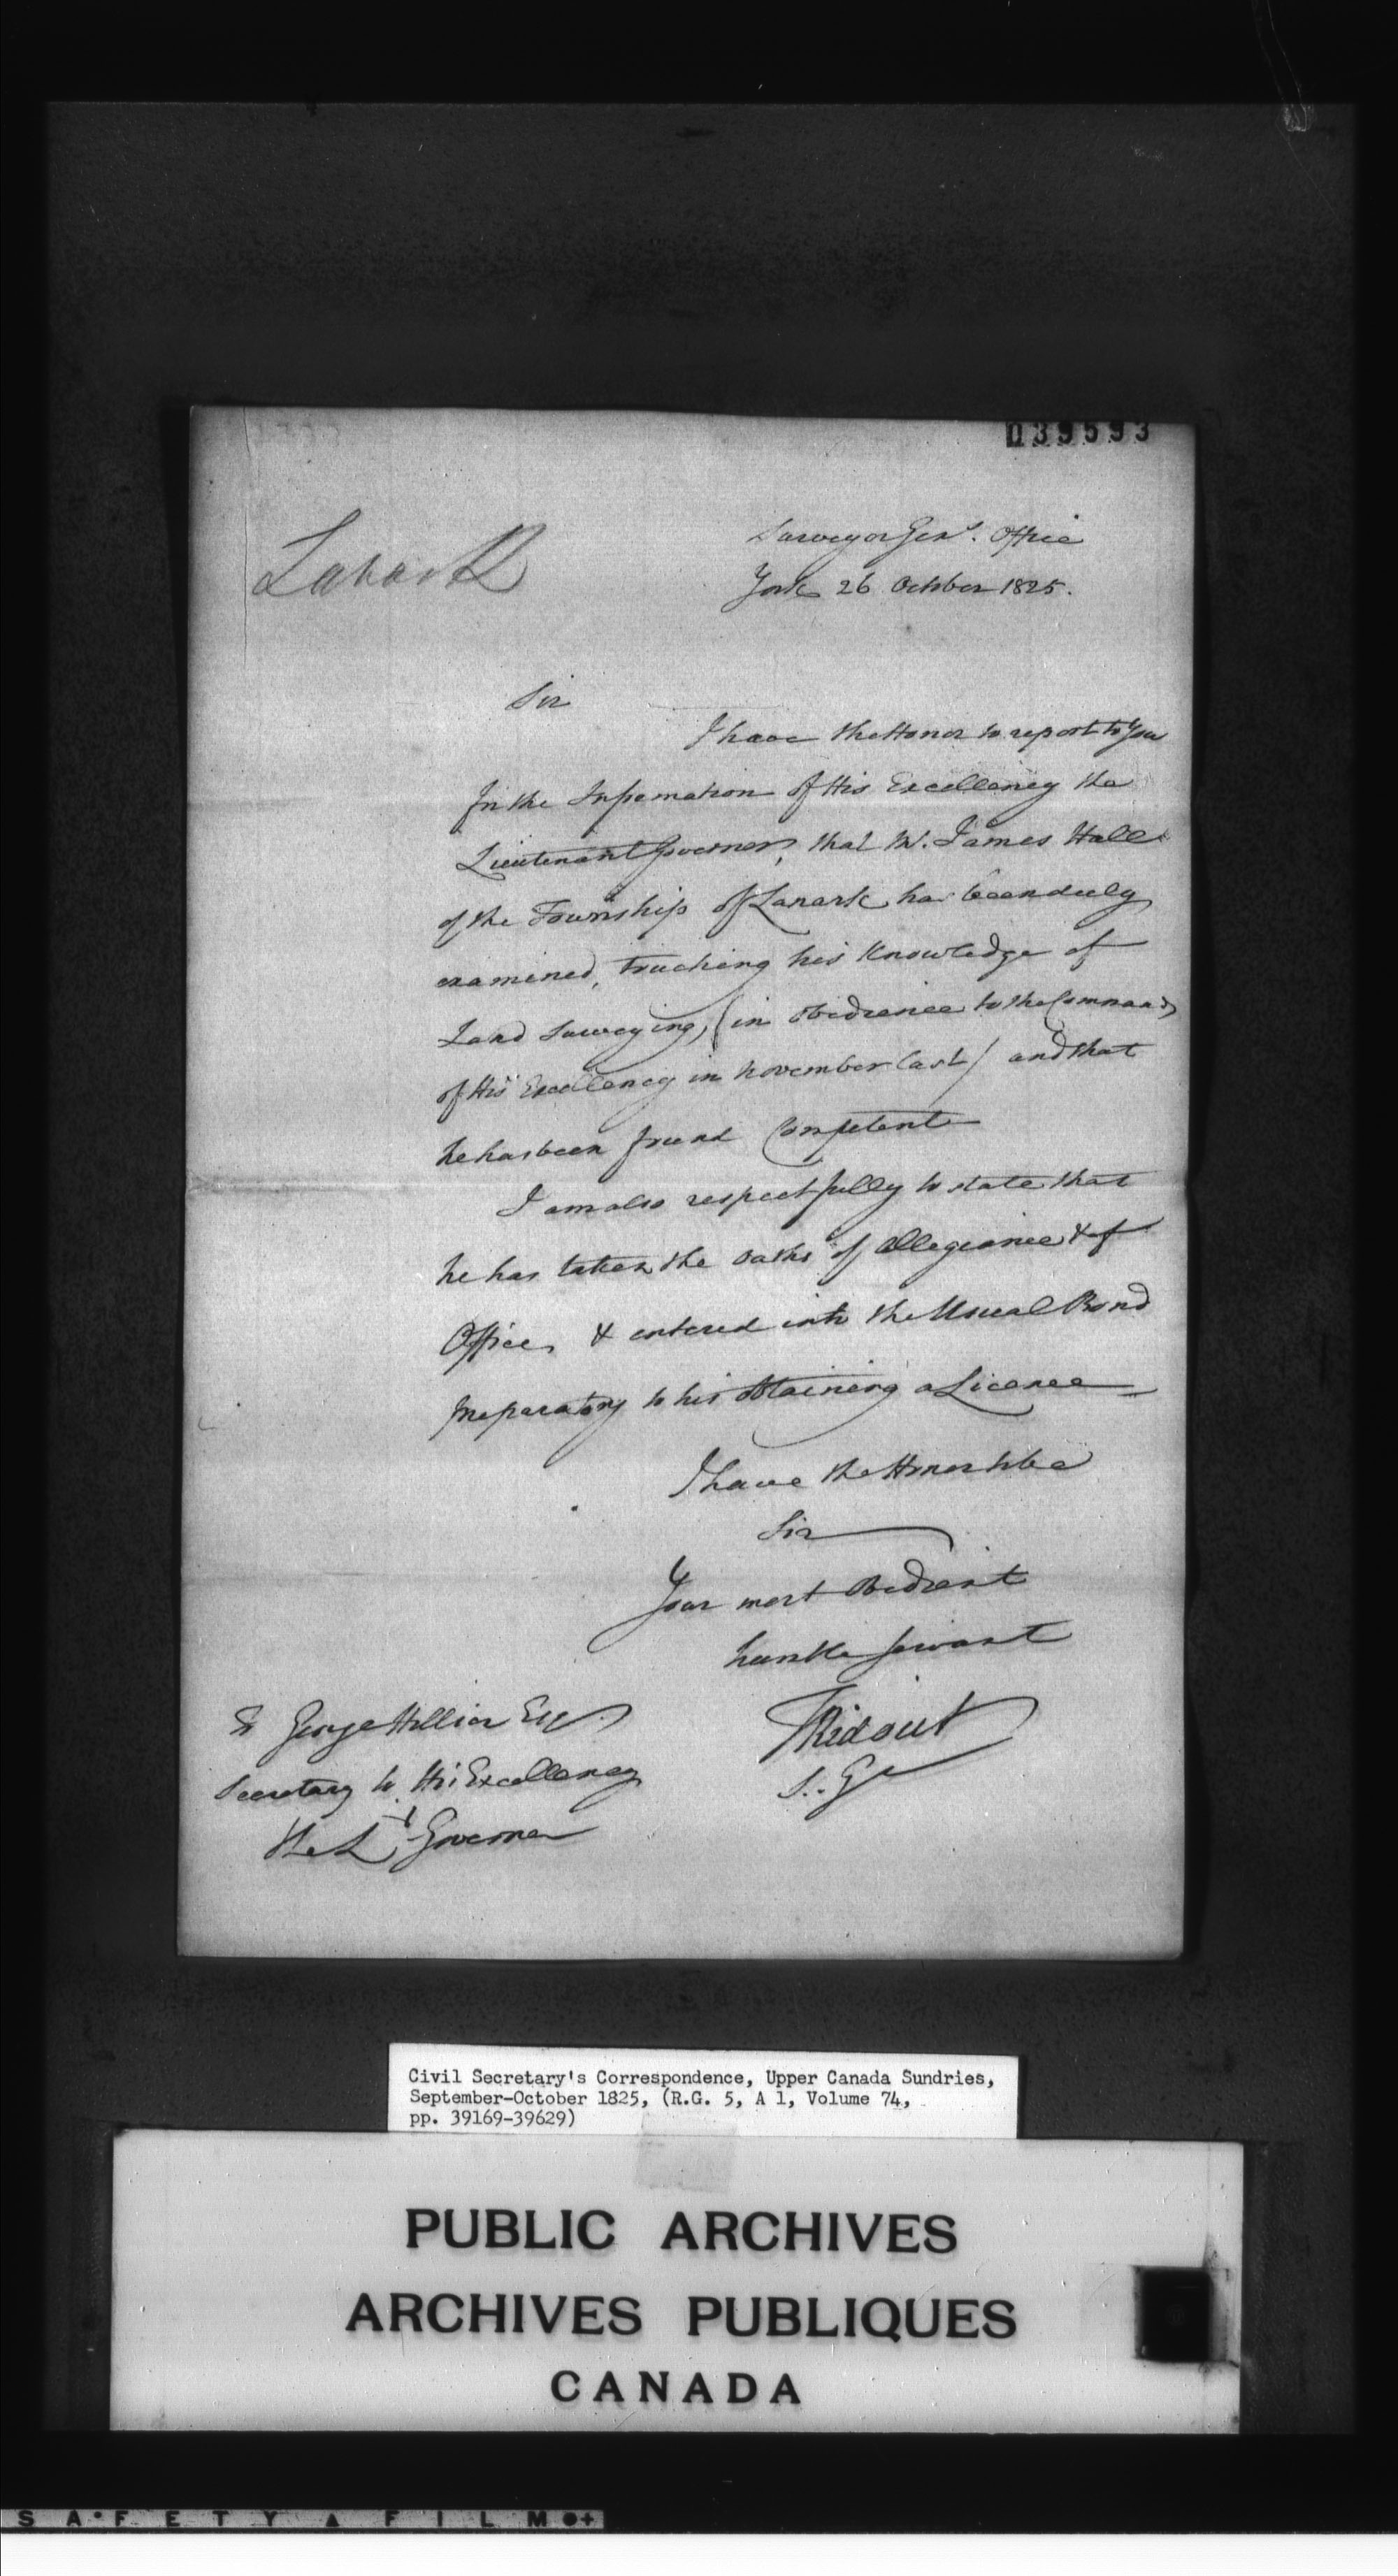 039593
Lanark
Surveyor Genl. Office
York 26 October 1825.
Sir
I have the Honor to report to You
for the Information of His Excellency the
Lieutenant Governor, that Mr. James Hall
of the Township of Lanark has been duly
examined, touching his Knowledge of
Land Surveying, (in obedience to the Commands
of His Excellency in november last) and that
he has been found Competent
I am also respectfully to state that
he has taken the oaths of allegiance & of
Office, & entered into the Usual Bond
preparatory to his obtaining a Licence
I have the Honor to be
Sir
Your most Obedient
humble servant
T Ridout
S. G
To George Hillier Esqr.
Secretary to His Excellency
the Lt Governor
Civil Secretary's Correspondence, Upper Canada Sundries,
September-October 1825, (R.G. 5, A 1, Volume 74,
pp. 39169-39629)
PUBLIC ARCHIVES
ARCHIVES PUBLIQUES
CANADA
SAFETY ▲ FILM